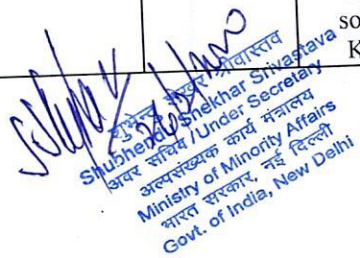 so
K
शुभेन्दु शेखर श्रीवास्तव
Shubhendu Shekhar Srivastava
अवर सचिव / Under Secretary
अल्पसंख्यक कार्य मंत्रालय
Ministry of Minority Affairs
भारत सरकार, नई दिल्ली
Govt. of India, New Delhi